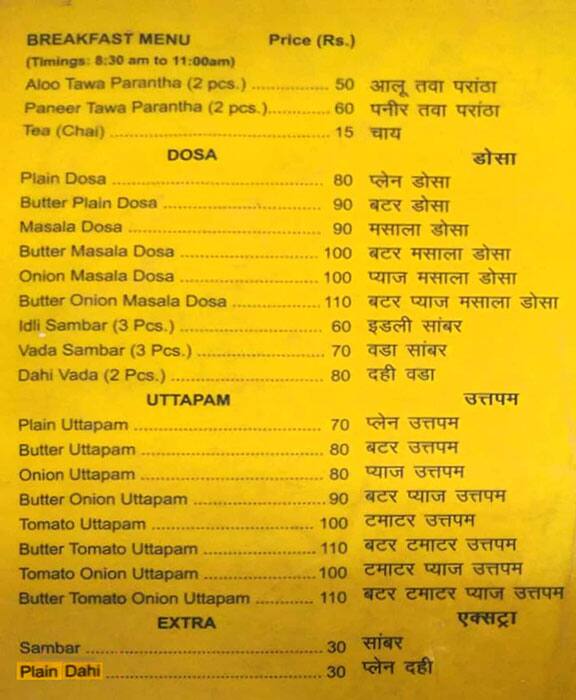 BREAKFAST MENU Price (Rs.)
(Timings: 8:30 am to 11:00am)
Aloo Tawa Parantha (2 pcs.) ..................... 50 आलू तवा परांठा
Paneer Tawa Parantha (2 pcs.)................ 60 पनीर तवा परांठा
Tea (Chai) ............................................ 15 चाय
DOSA डोसा
Plain Dosa ........................................... 80 प्लेन डोसा
Butter Plain Dosa ................................ 90 बटर डोसा
Masala Dosa ....................................... 90 मसाला डोसा
Butter Masala Dosa ............................. 100 बटर मसाला डोसा
Onion Masala Dosa ............................. 100 प्याज मसाला डोसा
Butter Onion Masala Dosa .................. 110 बटर प्याज मसाला डोसा
Idli Sambar (3 Pcs.) ............................. 60 इडली सांबर
Vada Sambar (3 Pcs.) .......................... 70 वडा सांबर
Dahi Vada (2 Pcs.) ............................... 80 दही वडा
UTTAPAM उत्तपम
Plain Uttapam ..................................... 70 प्लेन उत्तपम
Butter Uttapam .................................... 80 बटर उत्तपम
Onion Uttapam .................................... 80 प्याज उत्तपम
Butter Onion Uttapam .......................... 90 बटर प्याज उत्तपम
Tomato Uttapam .................................. 100 टमाटर उत्तपम
Butter Tomato Uttapam ....................... 110 बटर टमाटर उत्तपम
Tomato Onion Uttapam ....................... 100 टमाटर प्याज उत्तपम
Butter Tomato Onion Uttapam ............. 110 बटर टमाटर प्याज उत्तपम
EXTRA एक्सट्रा
Sambar ............................................... 30 सांबर
Plain Dahi ........................................... 30 प्लेन दही